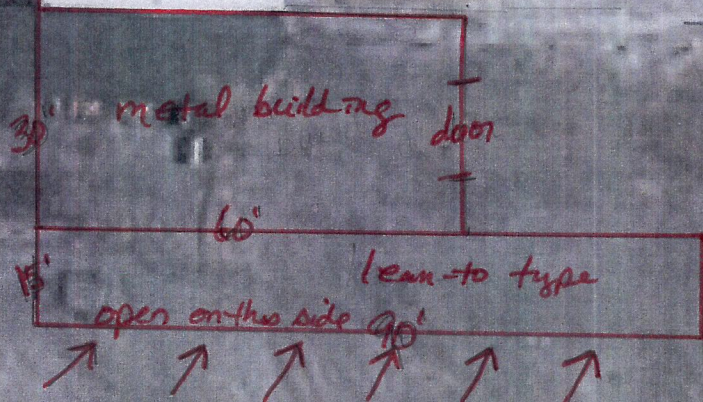 metal building
30'
door
60'
15'
lean-to type
open on this side 90'